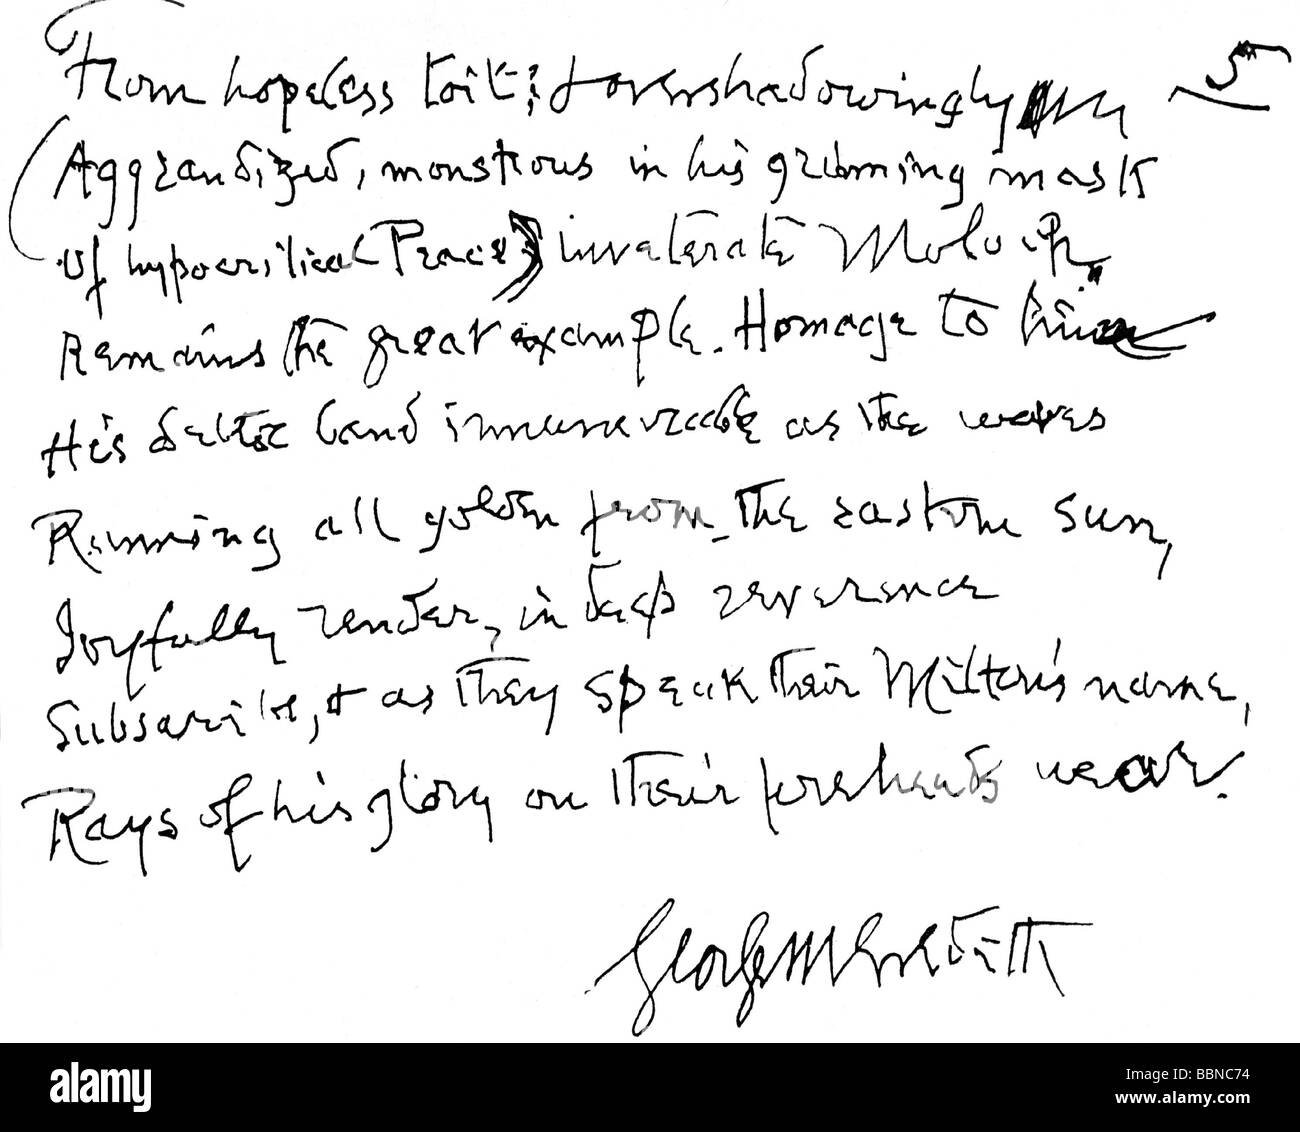 5
From hopeless toil: & overshadowingly
Aggrandized, monstrous in his grinning mask
Of hypocritical Peace, inveterate Moloch
Remains the great example. Homage to him
His debtor band innumerable as the waves
Running all golden from the eastern sun,
Joyfully render, in deep reverence
Subscribe, & as they speak their Milton's name,
Rays of his glory on their foreheads wear.
George Meredith
alamy
Image ID: BBNC74
www.alamy.com